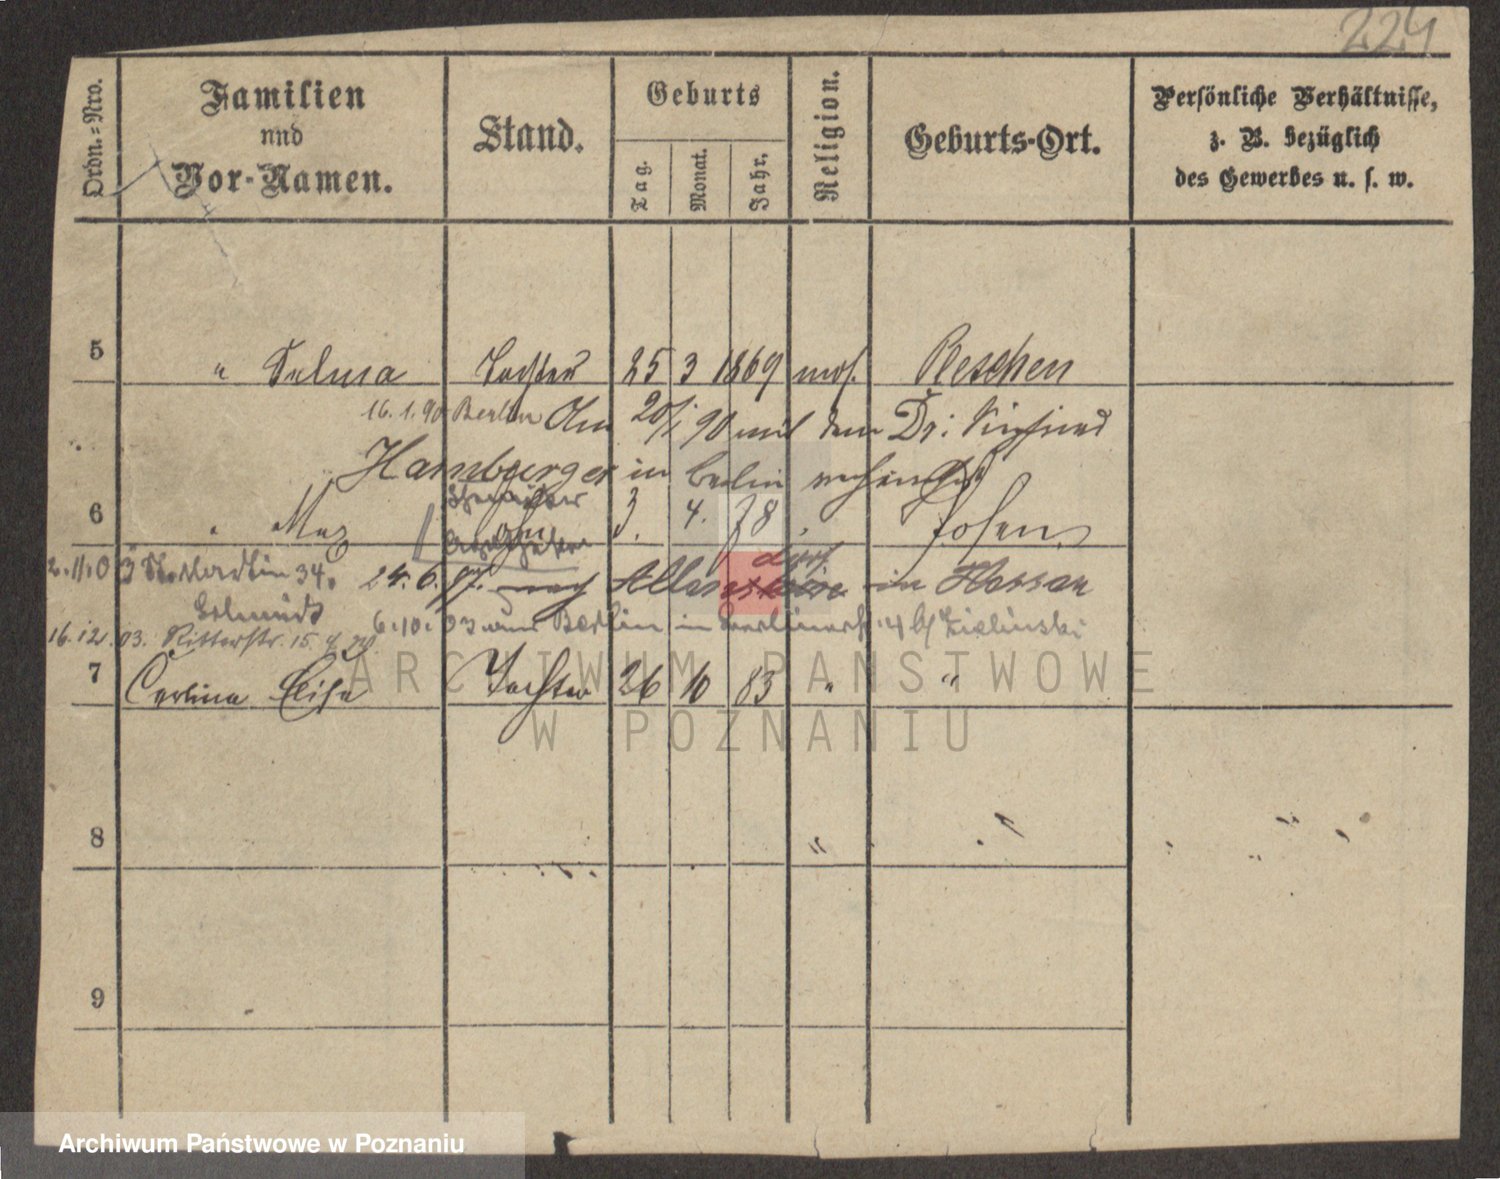 224
Ordn.=Nro.
Familien
und
Vor-Namen.
Stand.
Geburts
Tag.
Monat.
Jahr.
Religion.
Geburts-Ort.
Persönliche Verhältnisse,
z. B. bezüglich
des Gewerbes u. s. w.
5 " Selma Tochter 25 3 1869 mos. Reschen
16.1.90 Berlin Am 20/1 90 mit dem Dr: Siegfried
Hamburger in Berlin verheirathet
6 " Max Sohn 3. 4. 78 " Posen
Apotheker
2.11.03 St. Martin 34. 24. 6. 97. nach Allendorf in Hessen
6.10.03 von Berlin in 4 b/ Zielinski
16.12.03. Ritterstr. 15.
7 Carlina Elise Tochter 26 10 83 " "
8 "
9
ARCHIWUM PAŃSTWOWE
W POZNANIU
Archiwum Państwowe w Poznaniu